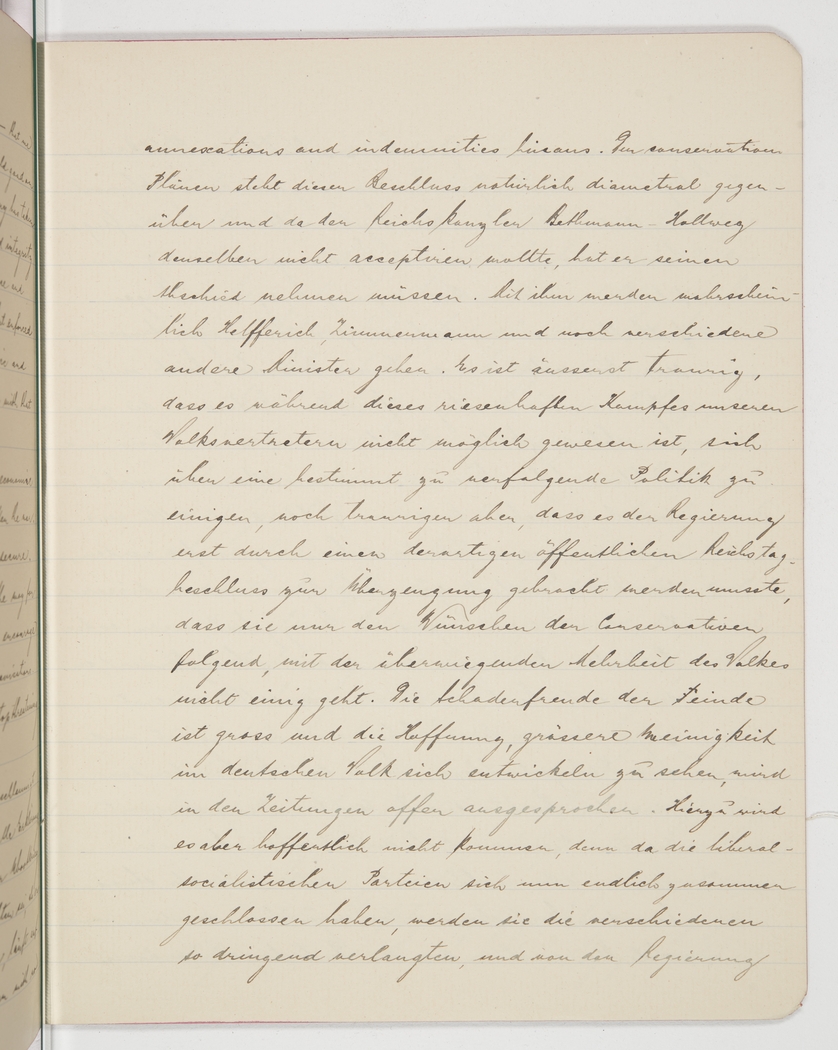 annexations and indemnities hinaus. Den conservativen
Plänen steht dieser Beschluss natürlich diametral gegen-
über und da der Reichskanzler Bethmann-Hollweg
denselben nicht acceptiren wollte, hat er seinen
Abschied nehmen müssen. Mit ihm werden wahrschein-
lich Helfferich, Zimmermann und noch verschiedene
andere Minister gehen. Es ist äusserst traurig,
dass es während dieses riesenhaften Kampfes unseren
Volksvertretern nicht möglich gewesen ist, sich
über eine bestimmt zu verfolgende Politik zu
einigen, noch trauriger aber, dass es der Regierung
erst durch einen derartigen öffentlichen Reichstag-
beschluss zur Überzeugung gebracht werden musste,
dass sie nur den Wünschen der Conservativen
folgend, mit der überwiegenden Mehrheit des Volkes
nicht einig geht. Die Schadenfreude der Feinde
ist gross und die Hoffnung, grössere Uneinigkeit
im deutschen Volk sich entwickeln zu sehen, wird
in den Zeitungen offen ausgesprochen. Hierzu wird
es aber hoffentlich nicht kommen, denn da die liberal-
socialistischen Parteien sich nun endlich zusammen
geschlossen haben, werden sie die verschiedenen
so dringend verlangten, und von der Regierung